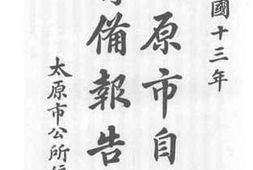 國十三年
原市自
備報告
太原市公所